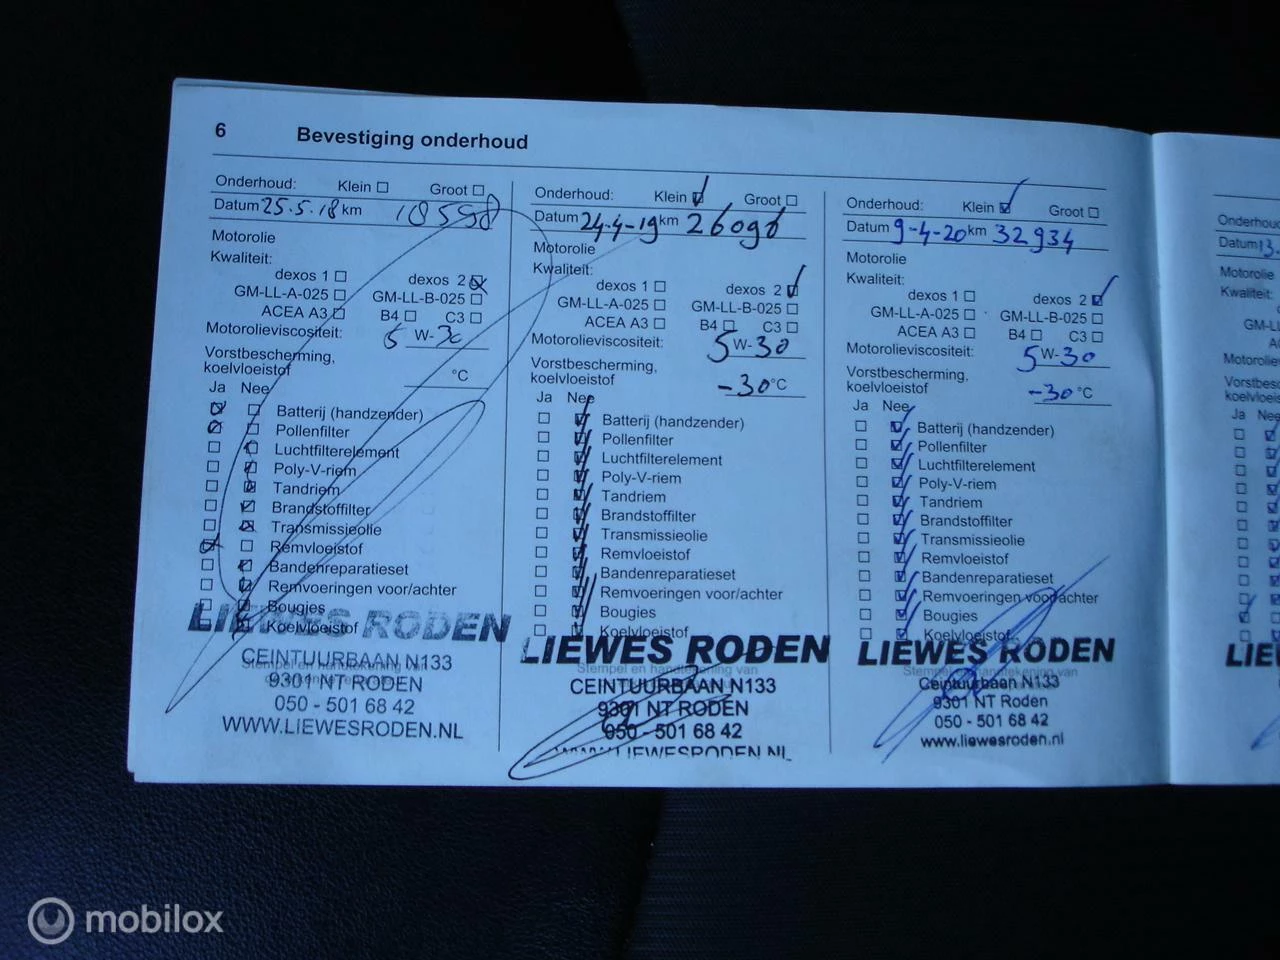 6 Bevestiging onderhoud
Onderhoud: Klein Groot
Datum 25.5.18 km 18558
Motorolie
Kwaliteit:
dexos 1 dexos 2
GM-LL-A-025 GM-LL-B-025
ACEA A3 B4 C3
Motorolieviscositeit: 5 W-30
Vorstbescherming,
koelvloeistof °C
Ja Nee
Batterij (handzender)
Pollenfilter
Luchtfilterelement
Poly-V-riem
Tandriem
Brandstoffilter
Transmissieolie
Remvloeistof
Bandenreparatieset
Remvoeringen voor/achter
Bougies
Koelvloeistof
LIEWES RODEN
CEINTUURBAAN N133
9301 NT RODEN
050 - 501 68 42
WWW.LIEWESRODEN.NL
Onderhoud: Klein Groot
Datum 24-4-19 km 26096
Motorolie
Kwaliteit:
dexos 1 dexos 2
GM-LL-A-025 GM-LL-B-025
ACEA A3 B4 C3
Motorolieviscositeit: 5 W-30
Vorstbescherming,
koelvloeistof -30 °C
Ja Nee
Batterij (handzender)
Pollenfilter
Luchtfilterelement
Poly-V-riem
Tandriem
Brandstoffilter
Transmissieolie
Remvloeistof
Bandenreparatieset
Remvoeringen voor/achter
Bougies
Koelvloeistof
LIEWES RODEN
Stempel en handtekening van
CEINTUURBAAN N133
9301 NT RODEN
050 - 501 68 42
WWW.LIEWESRODEN.NL
Onderhoud: Klein Groot
Datum 9-4-20 km 32934
Motorolie
Kwaliteit:
dexos 1 dexos 2
GM-LL-A-025 GM-LL-B-025
ACEA A3 B4 C3
Motorolieviscositeit: 5 W-30
Vorstbescherming,
koelvloeistof -30 °C
Ja Nee
Batterij (handzender)
Pollenfilter
Luchtfilterelement
Poly-V-riem
Tandriem
Brandstoffilter
Transmissieolie
Remvloeistof
Bandenreparatieset
Remvoeringen voor/achter
Bougies
Koelvloeistof
LIEWES RODEN
Stempel en handtekening van
Ceintuurbaan N133
9301 NT Roden
050 - 501 68 42
www.liewesroden.nl
Datum 13-
Motorolie
Kwaliteit:
GM-LL
Ja Nee
LIEW
mobilox